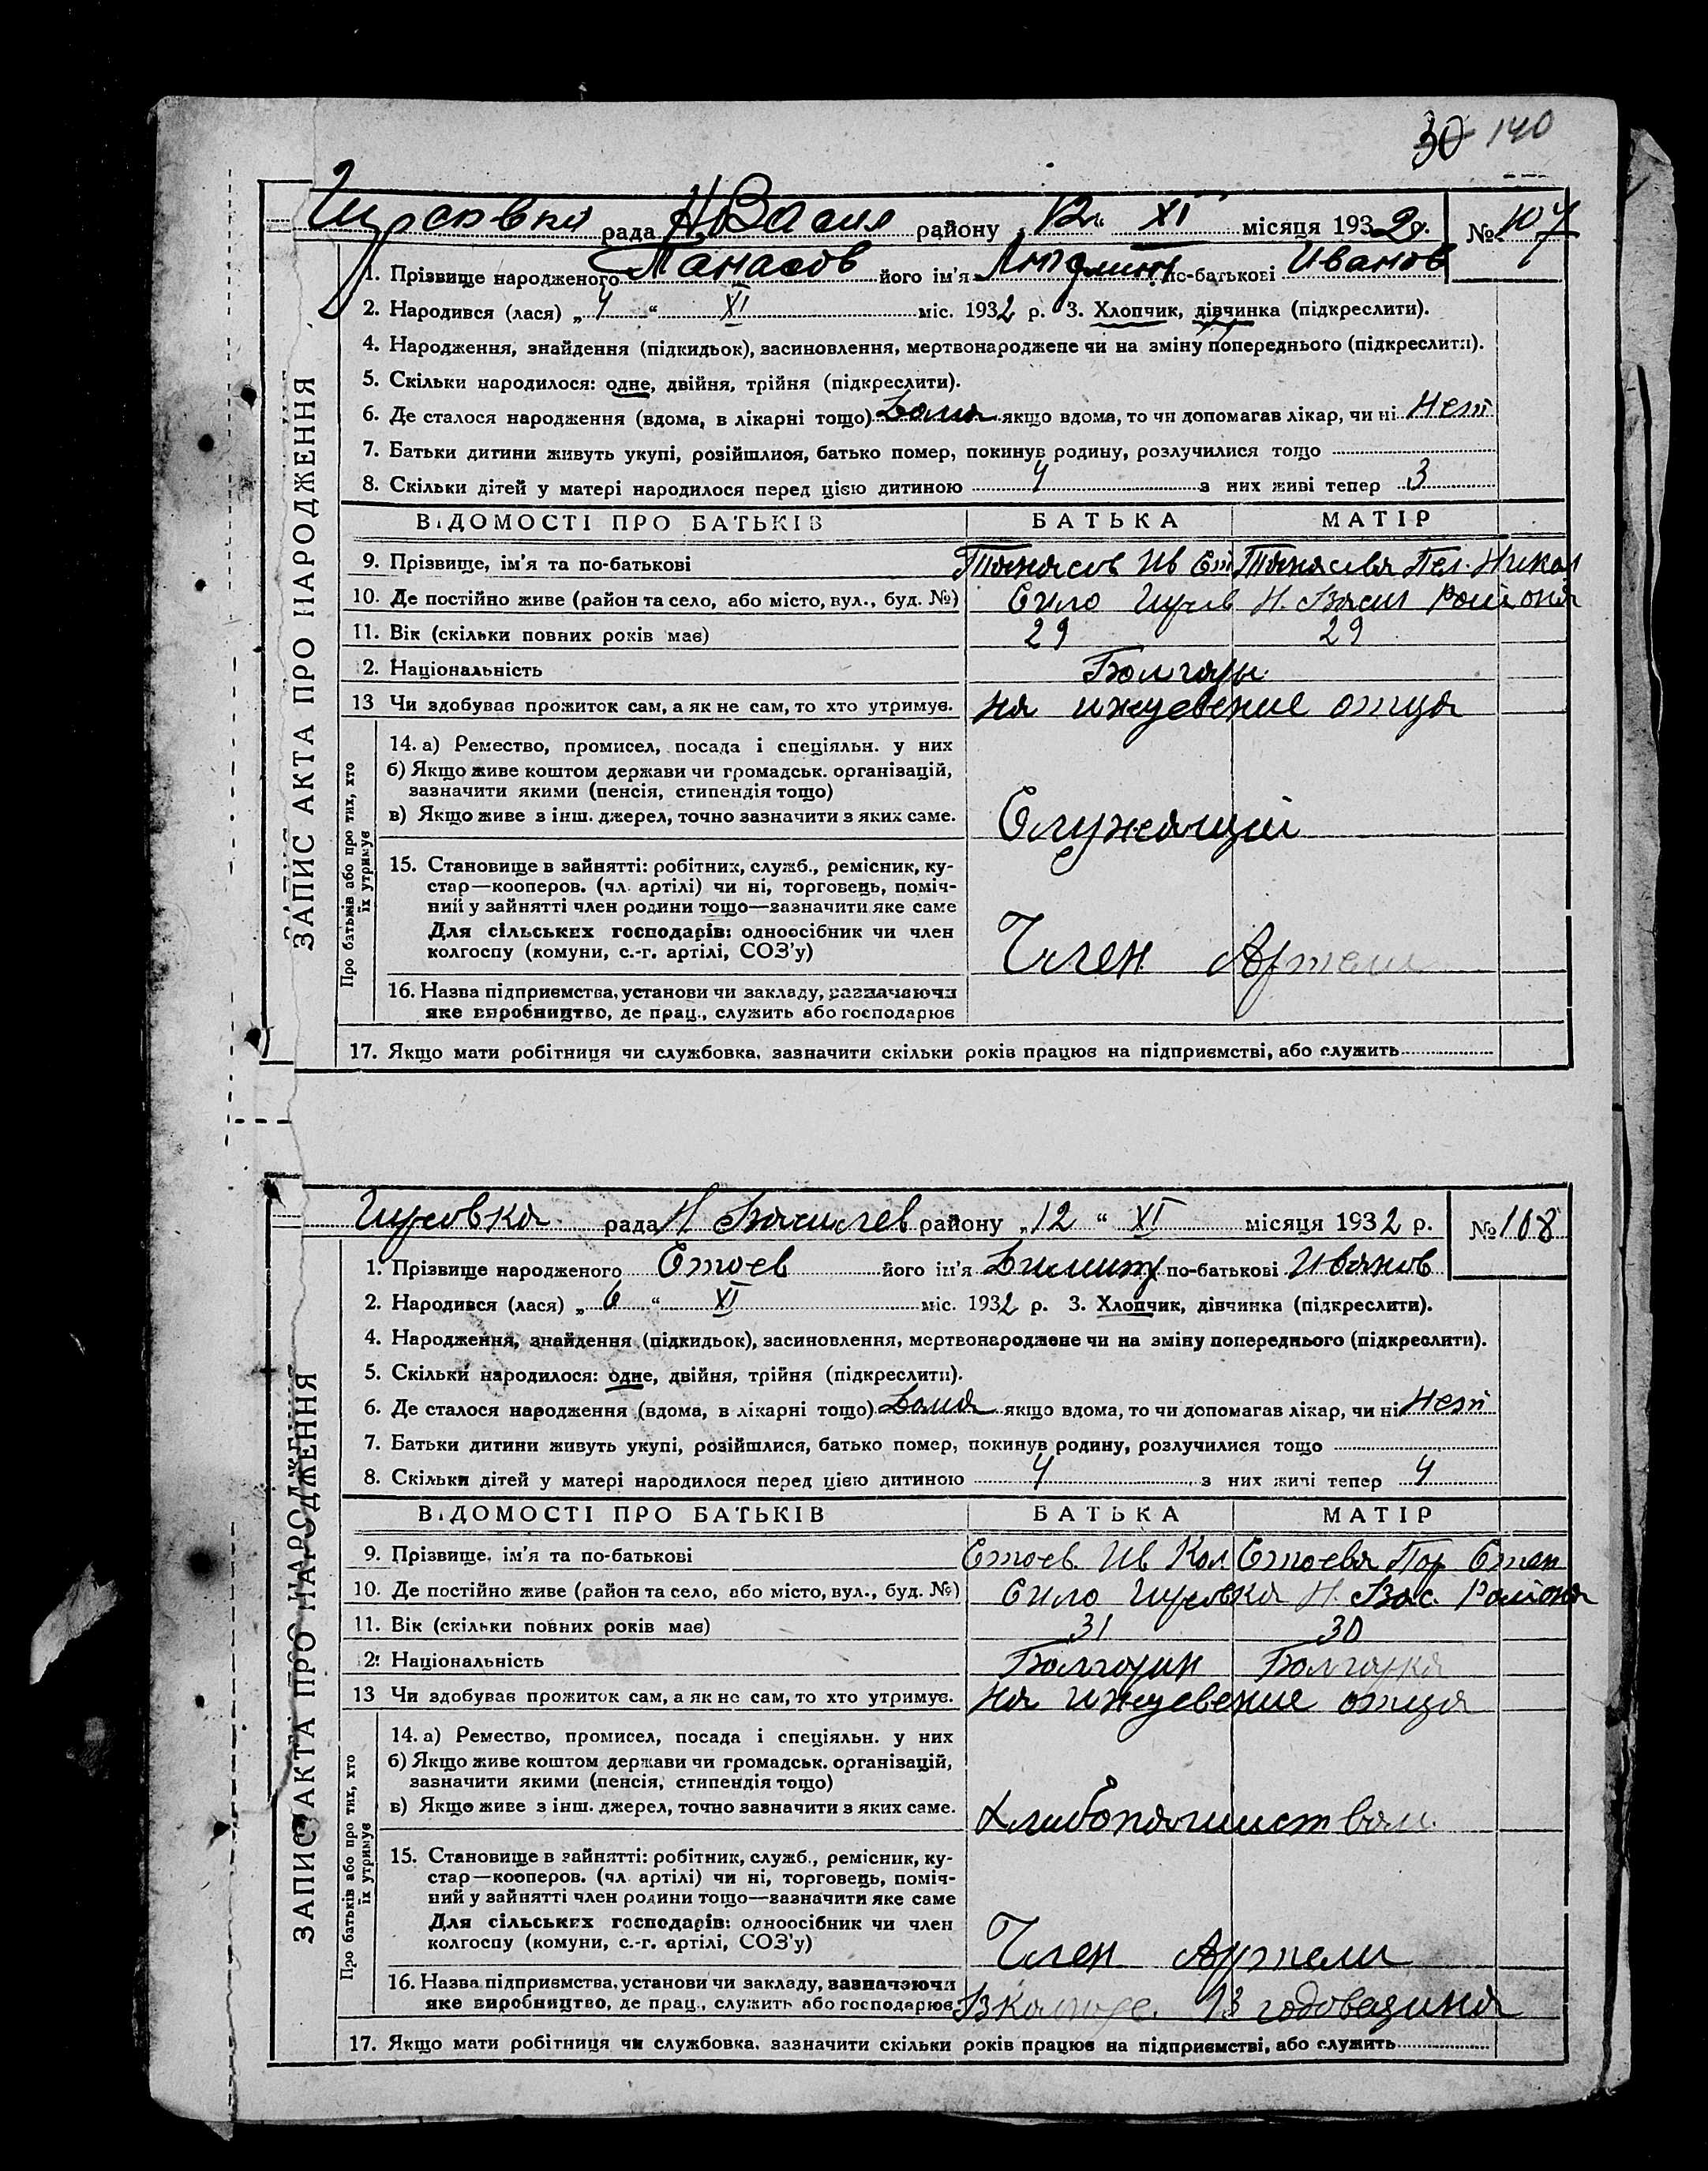 30 140
Гирсовка рада Н Васил району „12“ XI місяця 1932 р. № 107
1. Прізвище народженого Танасов його ім'я по-батькові Иванов
2. Народився (лася) „4“ XI міс. 1932 р. 3. Хлопчик, дівчинка (підкреслити).
4. Народження, знайдення (підкидьок), засиновлення, мертвонароджене чи на зміну попереднього (підкреслити).
5. Скільки народилося: одне, двійня, трійня (підкреслити).
6. Де сталося народження (вдома, в лікарні тощо) Дома якщо вдома, то чи допомагав лікар, чи ні Нет
7. Батьки дитини живуть укупі, розійшлися, батько помер, покинув родину, розлучилися тощо
8. Скільки дітей у матері народилося перед цією дитиною 4 з них живі тепер 3
ВІДОМОСТІ ПРО БАТЬКІВ БАТЬКА МАТІР
9. Прізвище, ім'я та по-батькові Танасов Ив Ст Танасова Пел. Никол
10. Де постійно живе (район та село, або місто, вул., буд. №) Сило Гирсов Н. Васил Района
11. Вік (скільки повних років має) 29 29
12. Національність Болгары
13 Чи здобував прожиток сам, а як не сам, то хто утримує. на иждевение отца
14. а) Ремество, промисел, посада і спеціяльн. у них
б) Якщо живе коштом держави чи громадськ. організацій,
зазначити якими (пенсія, стипендія тощо)
в) Якщо живе з інш. джерел, точно зазначити з яких саме. Служащий
15. Становище в зайнятті: робітник, служб., ремісник, ку-
стар—кооперов. (чл. артілі) чи ні, торговець, поміч-
ний у зайнятті член родини тощо—зазначити яке саме
Для сільських господарів: одноосібник чи член
колгоспу (комуни, с.-г. артілі, СОЗ'у) Член Артели
16. Назва підприємства, установи чи закладу, зазначаючи
яке виробництво, де прац., служить або господарює
17. Якщо мати робітниця чи службовка, зазначити скільки років працює на підприємстві, або служить
ЗАПИС АКТА ПРО НАРОДЖЕННЯ
Про батьків або про тих, хто
їх утримує
Гирсовка рада Н Василев району „12“ XI місяця 1932 р. № 108
1. Прізвище народженого Стоев його ім'я Димитр по-батькові Иванов
2. Народився (лася) „6“ XI міс. 1932 р. 3. Хлопчик, дівчинка (підкреслити).
4. Народження, знайдення (підкидьок), засиновлення, мертвонароджене чи на зміну попереднього (підкреслити).
5. Скільки народилося: одне, двійня, трійня (підкреслити).
6. Де сталося народження (вдома, в лікарні тощо) Дома якщо вдома, то чи допомагав лікар, чи ні Нет
7. Батьки дитини живуть укупі, розійшлися, батько помер, покинув родину, розлучилися тощо
8. Скільки дітей у матері народилося перед цією дитиною 4 з них живі тепер 4
ВІДОМОСТІ ПРО БАТЬКІВ БАТЬКА МАТІР
9. Прізвище, ім'я та по-батькові Стоев Ив Кол Стоева Пар Степ
10. Де постійно живе (район та село, або місто, вул., буд. №) Сило Гирсовка Н. Вас. Района
11. Вік (скільки повних років має) 31 30
12. Національність Болгарин Болгарка
13 Чи здобував прожиток сам, а як не сам, то хто утримує. на иждевение отца
14. а) Ремество, промисел, посада і спеціяльн. у них
б) Якщо живе коштом держави чи громадськ. організацій,
зазначити якими (пенсія, стипендія тощо)
в) Якщо живе з інш. джерел, точно зазначити з яких саме. Хлибопашиством
15. Становище в зайнятті: робітник, служб., ремісник, ку-
стар—кооперов. (чл. артілі) чи ні, торговець, поміч-
ний у зайнятті член родини тощо—зазначити яке саме
Для сільських господарів: одноосібник чи член
колгоспу (комуни, с.-г. артілі, СОЗ'у) Член Артели
16. Назва підприємства, установи чи закладу, зазначаючи
яке виробництво, де прац., служить або господарює 13 годовщина
17. Якщо мати робітниця чи службовка, зазначити скільки років працює на підприємстві, або служить
ЗАПИС АКТА ПРО НАРОДЖЕННЯ
Про батьків або про тих, хто
їх утримує